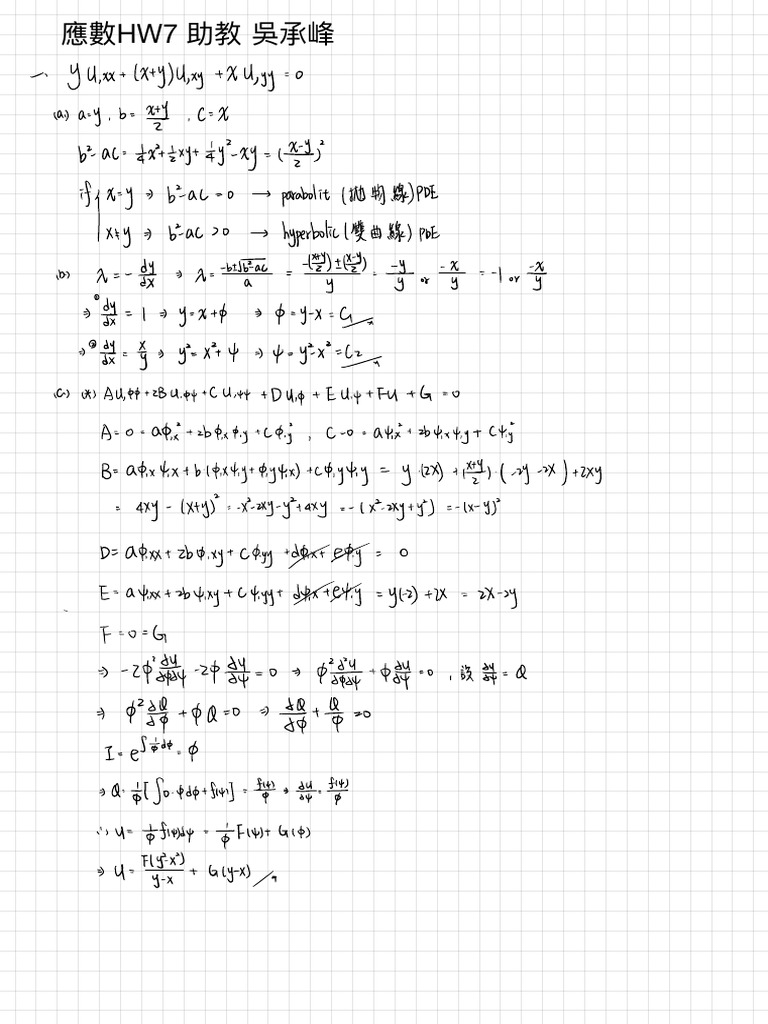 應數HW7 助教 吳承峰
一、 y u,xx + (x+y)u,xy + x u,yy = 0
(a) a=y, b= (x+y)/2, c=x
b²-ac = 1/4x²+1/2xy+1/4y²-xy = ((x-y)/2)²
if { x=y ⇒ b²-ac=0 → parabolit (拋物線) PDE
x≠y ⇒ b²-ac>0 → hyperbolic (雙曲線) PDE
(b) λ = -dy/dx ⇒ λ = (-b±√(b²-ac))/a = (-((x+y)/2)±((x-y)/2))/y = -y/y or -x/y = -1 or -x/y
⇒ ① dy/dx = 1 ⇒ y=x+φ ⇒ φ=y-x=C₁
⇒ ② dy/dx = x/y ⇒ y²=x²+ψ ⇒ ψ=y²-x²=C₂
(c) (*) A u,φφ + 2B u,φψ + C u,ψψ + D u,φ + E u,ψ + Fu + G = 0
A=0=aφ,x²+2bφ,xφ,y+cφ,y², C=0=aψ,x²+2bψ,xψ,y+cψ,y²
B= aφ,xψ,x+b(φ,xψ,y+φ,yψ,x)+cφ,yψ,y = y·(2x)+((x+y)/2)·(-2y-2x)+2xy
= 4xy-(x+y)² = -x²-2xy-y²+4xy = -(x²-2xy+y²) = -(x-y)²
D= aφ,xx+2bφ,xy+cφ,yy+dφ,x+eφ,y = 0
E= aψ,xx+2bψ,xy+cψ,yy+dψ,x+eψ,y = y(-2)+2x = 2x-2y
F=0=G
⇒ -2φ² ∂²u/∂φ∂ψ - 2φ ∂u/∂ψ = 0 ⇒ φ² ∂²u/∂φ∂ψ + φ ∂u/∂ψ = 0, 設 ∂u/∂ψ = Q
⇒ φ² ∂Q/∂φ + φQ = 0 ⇒ ∂Q/∂φ + Q/φ = 0
I = e^∫(1/φ)dφ = φ
⇒ Q = 1/φ[∫0·φdφ+f(ψ)] = f(ψ)/φ ⇒ ∂u/∂ψ = f(ψ)/φ
∴ u = 1/φ f(ψ)dψ = 1/φ F(ψ)+G(φ)
⇒ u = F(y²-x²)/(y-x) + G(y-x)